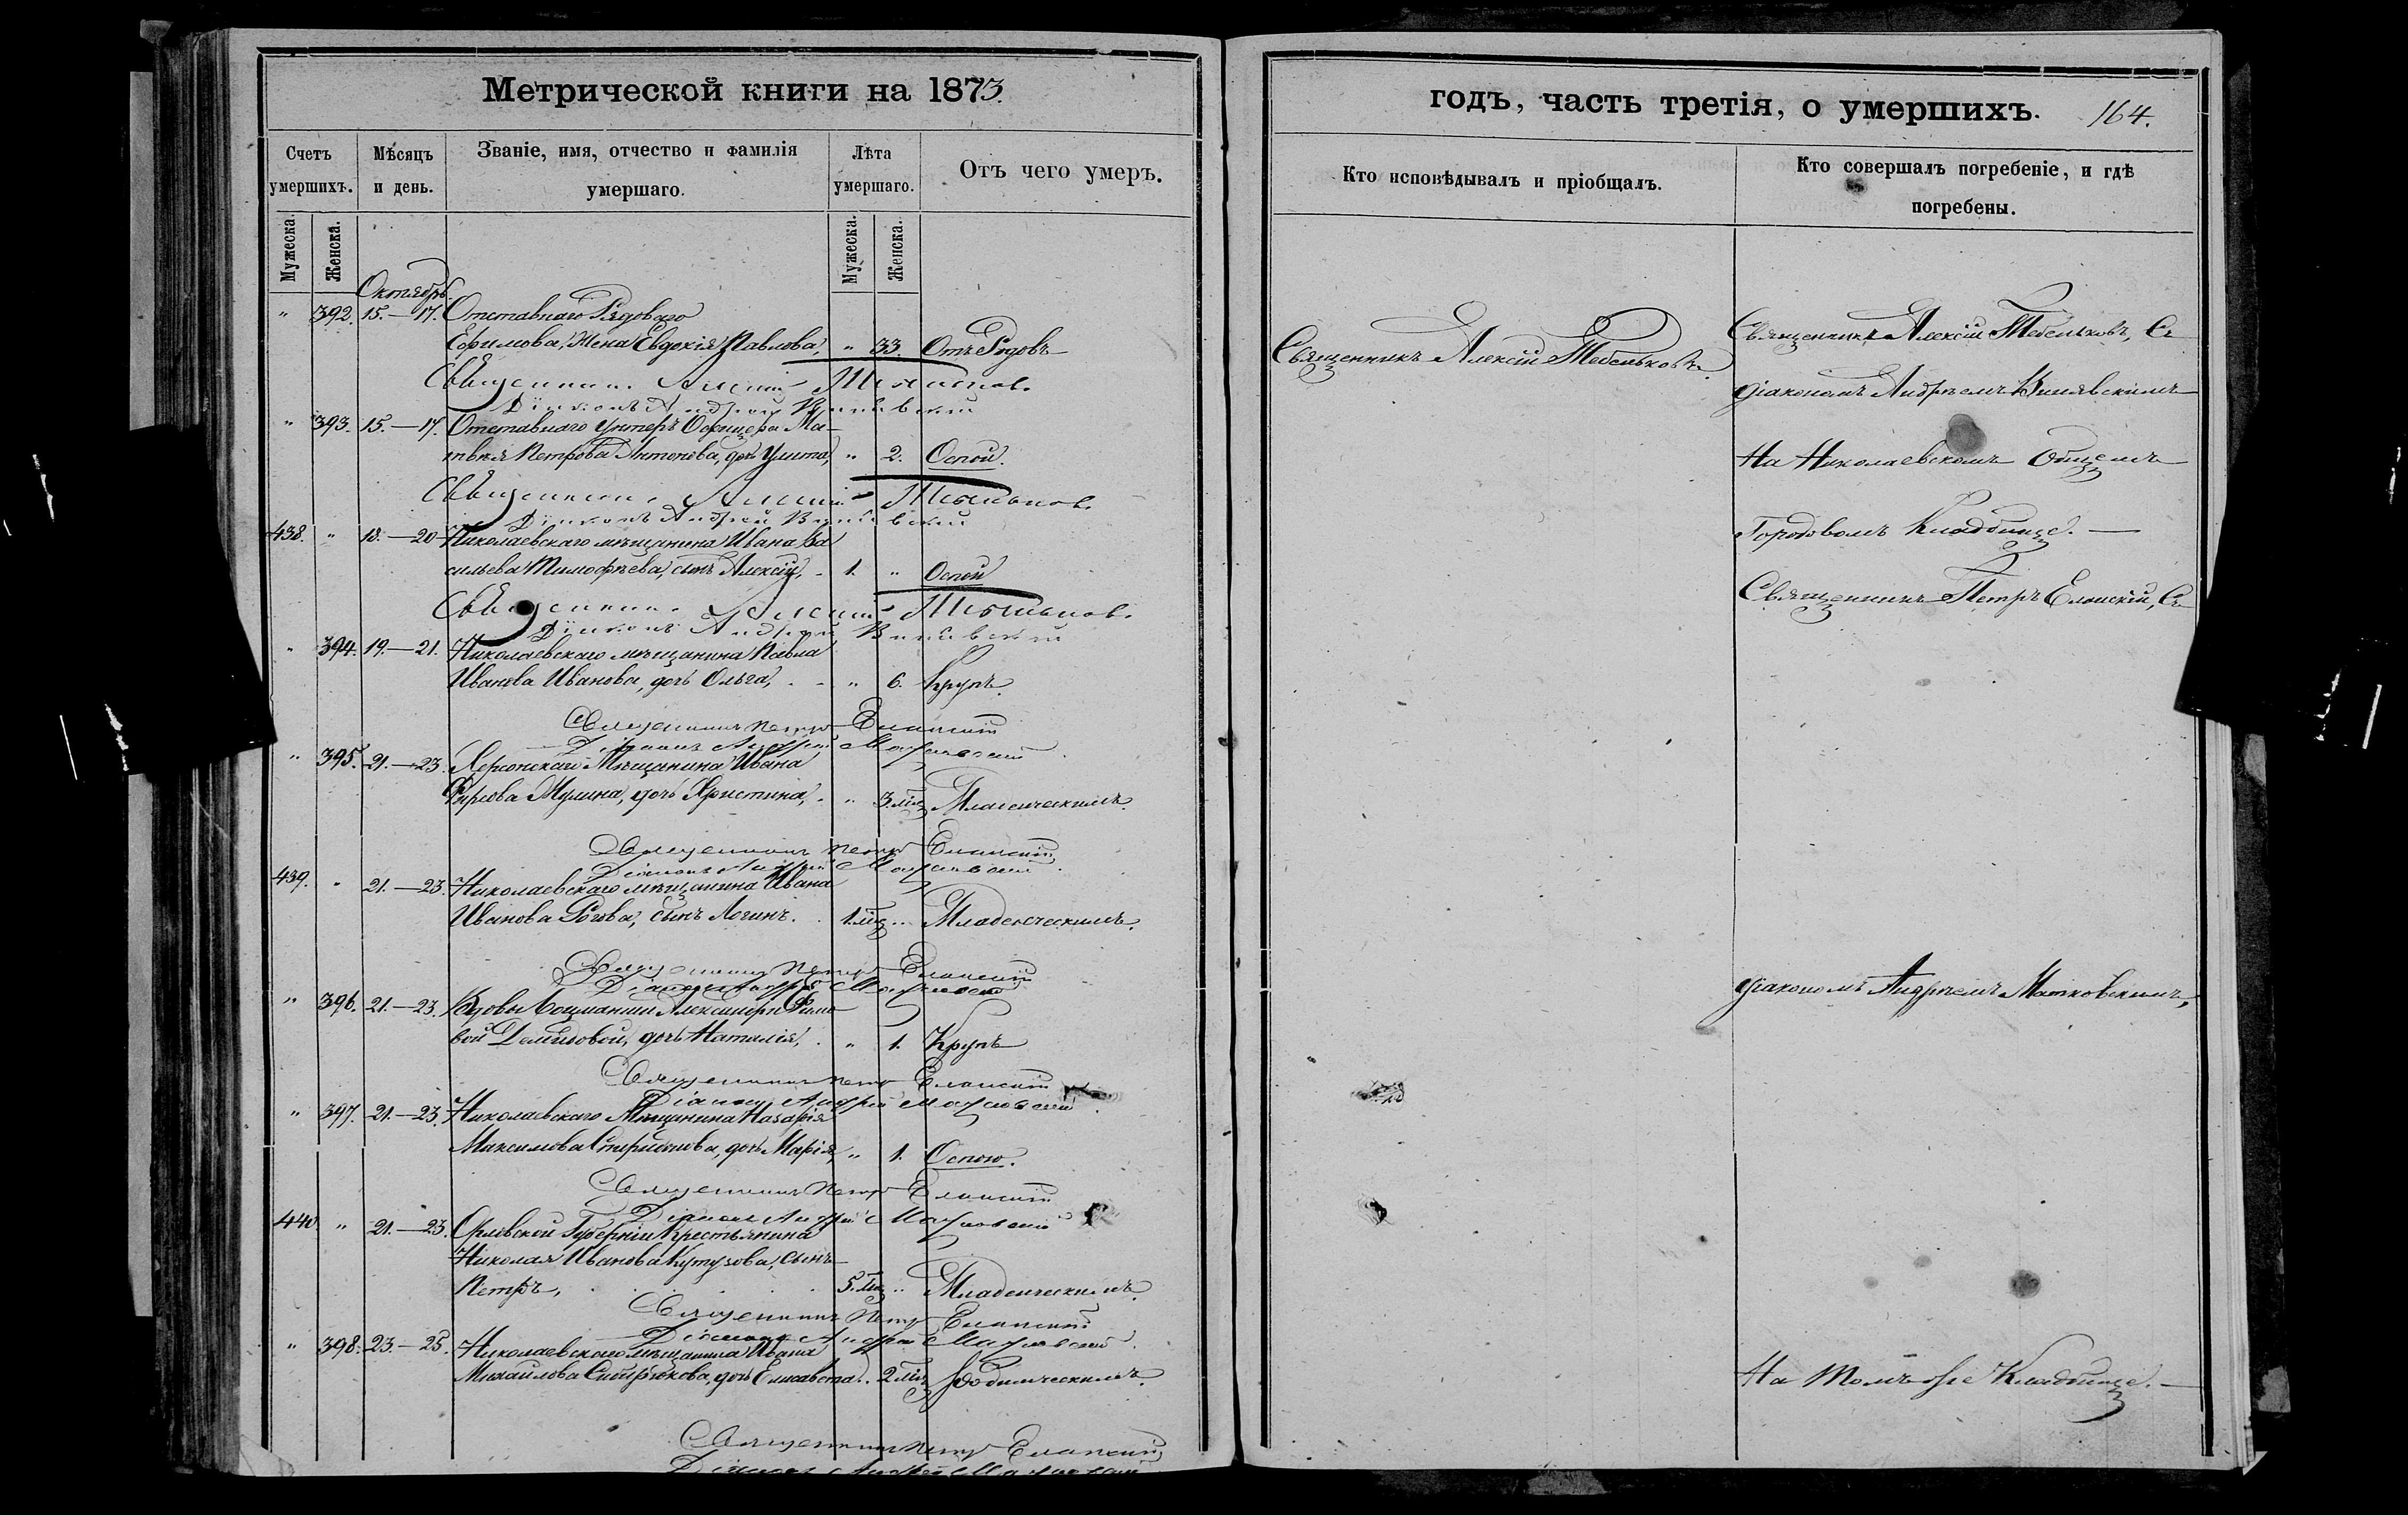 Метрической книги на 1873.
Счетъ умершихъ.
Мѣсяцъ и день.
Званіе, имя, отчество и фамилія умершаго.
Лѣта умершаго.
Отъ чего умеръ.
Мужеска.
Женска.
Мужеска.
Женска.
Октябрь
" 392. 15.—17. Отставнаго Рядоваго
Ефимова, жена Евдокія Павлова, " 33. Отъ Родовъ
Священникъ Алексій
Діаконъ Андрей
" 393. 15.—17. Отставнаго Унтеръ Офицера Ма-
твѣя Петрова Антонова, дочь Улита, " 2. Оспой.
Священникъ Алексій
Діаконъ Андрей
438. " 18.—20 Николаевскаго мѣщанина Ивана Ва
сильева Тимофѣева, сынъ Алексій, 1. " Оспой
Священникъ Алексій
Діаконъ Андрей
" 394. 19.—21. Николаевскаго мѣщанина Павла
Иванова Иванова, дочь Ольга, " 6. Крупъ.
Священникъ Петръ Еланскій
Діаконъ Андрей
" 395. 21.—23. Херсонскаго Мѣщанина Ивана
Мулина, дочь Христина, " 3. мѣс Младенческимъ.
Священникъ Петръ Еланскій
Діаконъ Андрей
439. " 21.—23. Николаевскаго мѣщанина Ивана
Иванова Рогова, сынъ Логинъ. 1. мѣс " Младенческимъ.
Священникъ Петръ Еланскій
Діаконъ Андрей
" 396. 21.—23. Вдовы Александры
вой Демидовой, дочь Наталія, " 1. Крупъ
Священникъ Петръ Еланскій
Діаконъ Андрей
" 397. 21.—23. Николаевскаго Мѣщанина Назарія
Максимова дочь Марія, " 1. Оспою.
Священникъ Петръ Еланскій
Діаконъ Андрей
440 " 21.—23. Орловской Губерніи Крестьянина
Николая Иванова Кутузова, сынъ
Петръ, 5. мѣс " Младенческимъ.
Священникъ Петръ Еланскій
Діаконъ Андрей
" 398. 23.—25. Николаевскаго мѣщанина Ивана
Михайлова дочь Елисавета. 2 мѣс Родимческимъ.
Священникъ Петръ Еланскій
Діаконъ Андрей
годъ, часть третія, о умершихъ. 164.
Кто исповѣдывалъ и пріобщалъ.
Кто совершалъ погребеніе, и гдѣ погребены.
Священникъ Алексій Тебеньковъ.
Священникъ Алексій Тебеньковъ, Съ
діакономъ Андреемъ
На Николаевскомъ Общемъ
Городовомъ Кладбище.—
Священникъ Петръ Еланскій, Съ
діакономъ Андреемъ Матковскимъ,
На томъ же Кладбище.—